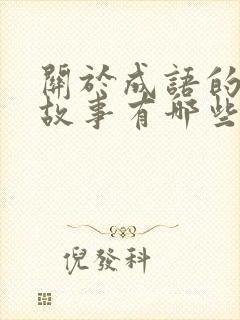 關於成語的
故事有哪些
倪發科